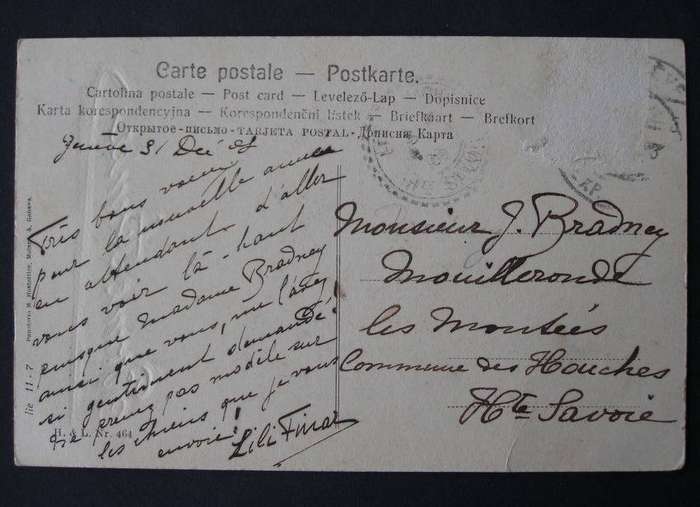 Carte postale — Postkarte.
Cartolina postale — Post card — Levelező-Lap — Dopisnice
Karta korespondencyjna — Korespondenční lístek — Briefkaart — Brefkort
Открытое-письмо-TARJETA POSTAL-Дописна Карта
Genève 31 Déc
Très bons vœux
pour la nouvelle année
en attendant d'aller
vous voir là-haut
puisque Madame Bradney
ainsi que vous, me l'avez
si gentiment demandé.
Ne prenez pas modèle sur
les chiens que je vous
envoie!
Lili
Monsieur J. Bradney
Mouilleronde
les Montées
Commune des Houches
Hte Savoie
H. & L. Nr. 464
11-7